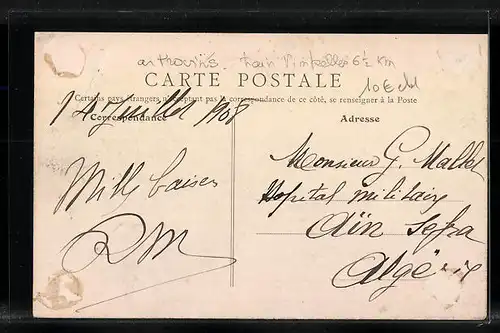 train 6½ Km
CARTE POSTALE
10€
Certains pays étrangers n'acceptant pas la correspondance de ce côté, se renseigner à la Poste
14 Juillet 1908
Correspondance
Adresse
Monsieur G. Mallet
Mille baisers
Hopital militaire
Aïn Sefra
Algérie